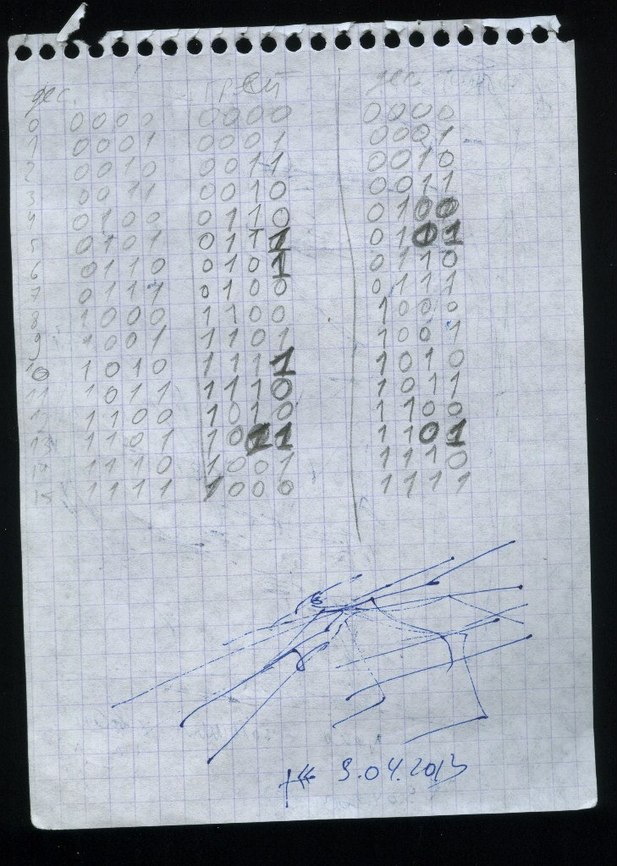 дес. ГРЕЙ дес.
0 0000 0000 0000
1 0001 0001 0001
2 0010 0011 0010
3 0011 0010 0011
4 0100 0110 0100
5 0101 0111 0101
6 0110 0101 0110
7 0111 0100 0111
8 1000 1100 1000
9 1001 1101 1001
10 1010 1111 1010
11 1011 1110 1011
12 1100 1010 1100
13 1101 1011 1101
14 1110 1001 1110
15 1111 1000 1111
9.04.2013